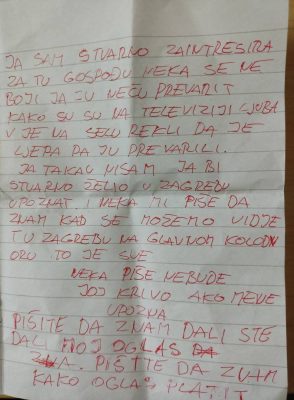 JA SAM STVARNO ZAINTRESIRA
ZA TU GOSPOĐU NEKA SE NE
BOJI JA JU NEĆU PREVARIT
KAKO SU SU NA TELEVIZIJI LJUBA
V JE NA SELU REKLI DA JE
LJEPA PA JU PREVARILI.
JA TAKAV NISAM JA BI
STVARNO ŽELIO U ZAGREBU
UPOZNAT I NEKA MI PIŠE DA
ZNAM KAD SE MOŽEMO VIDJE
T U ZAGREBU NA GLAVNOM KOLODV
ORU TO JE SVE
NEKA PIŠE NEBUDE
JOJ KRIVO AKO MENE
UPOZNA
PIŠITE DA ZNAM DALI STE
DALI MOJ OGLAS
ZA. PIŠITE DA ZNAM
KAKO OGLAS PLATIT